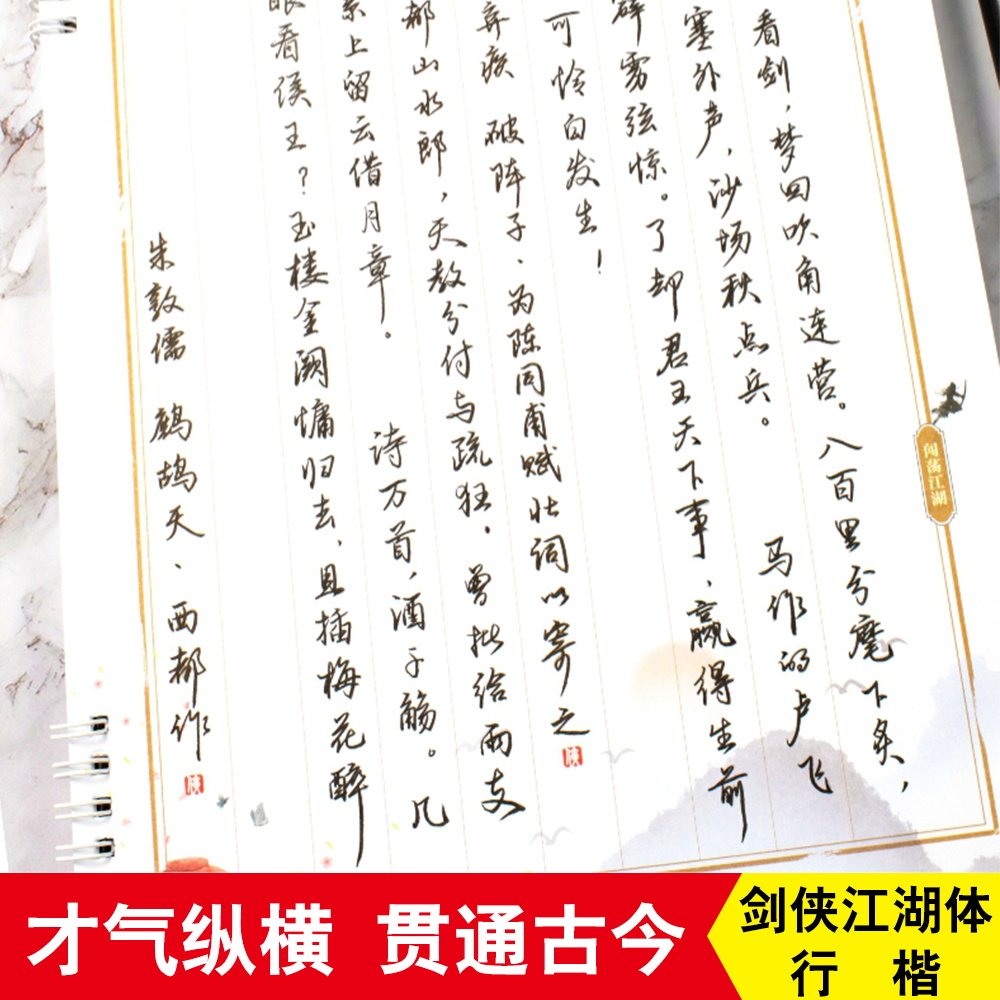 看剑，梦回吹角连营。八百里分麾下炙，
塞外声，沙场秋点兵。 马作的卢飞
雳弦惊。了却君王天下事，赢得生前
可怜白发生！
弃疾 破阵子、为陈同甫赋壮词以寄之
都山水郎，天教分付与疏狂。曾批给雨支
上留云借月章。 诗万首，酒千觞。几
眼看侯王？玉楼金阙慵归去，且插梅花醉
朱敦儒 鹧鸪天、西都作
闯荡江湖
才气纵横 贯通古今
剑侠江湖体
行 楷